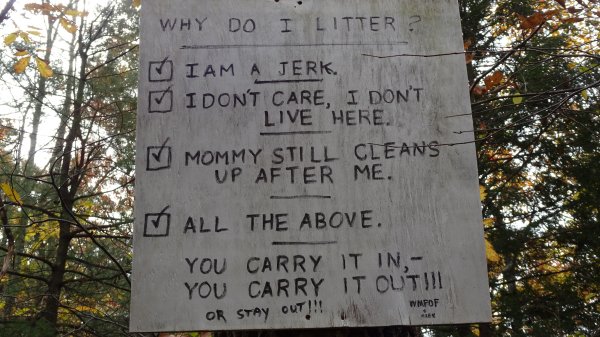 WHY DO I LITTER?
☑ I AM A JERK.
☑ I DON'T CARE, I DON'T
LIVE HERE.
☑ MOMMY STILL CLEANS
UP AFTER ME.
☑ ALL THE ABOVE.
YOU CARRY IT IN,-
YOU CARRY IT OUT!!!
OR STAY OUT!!!
WMPOF